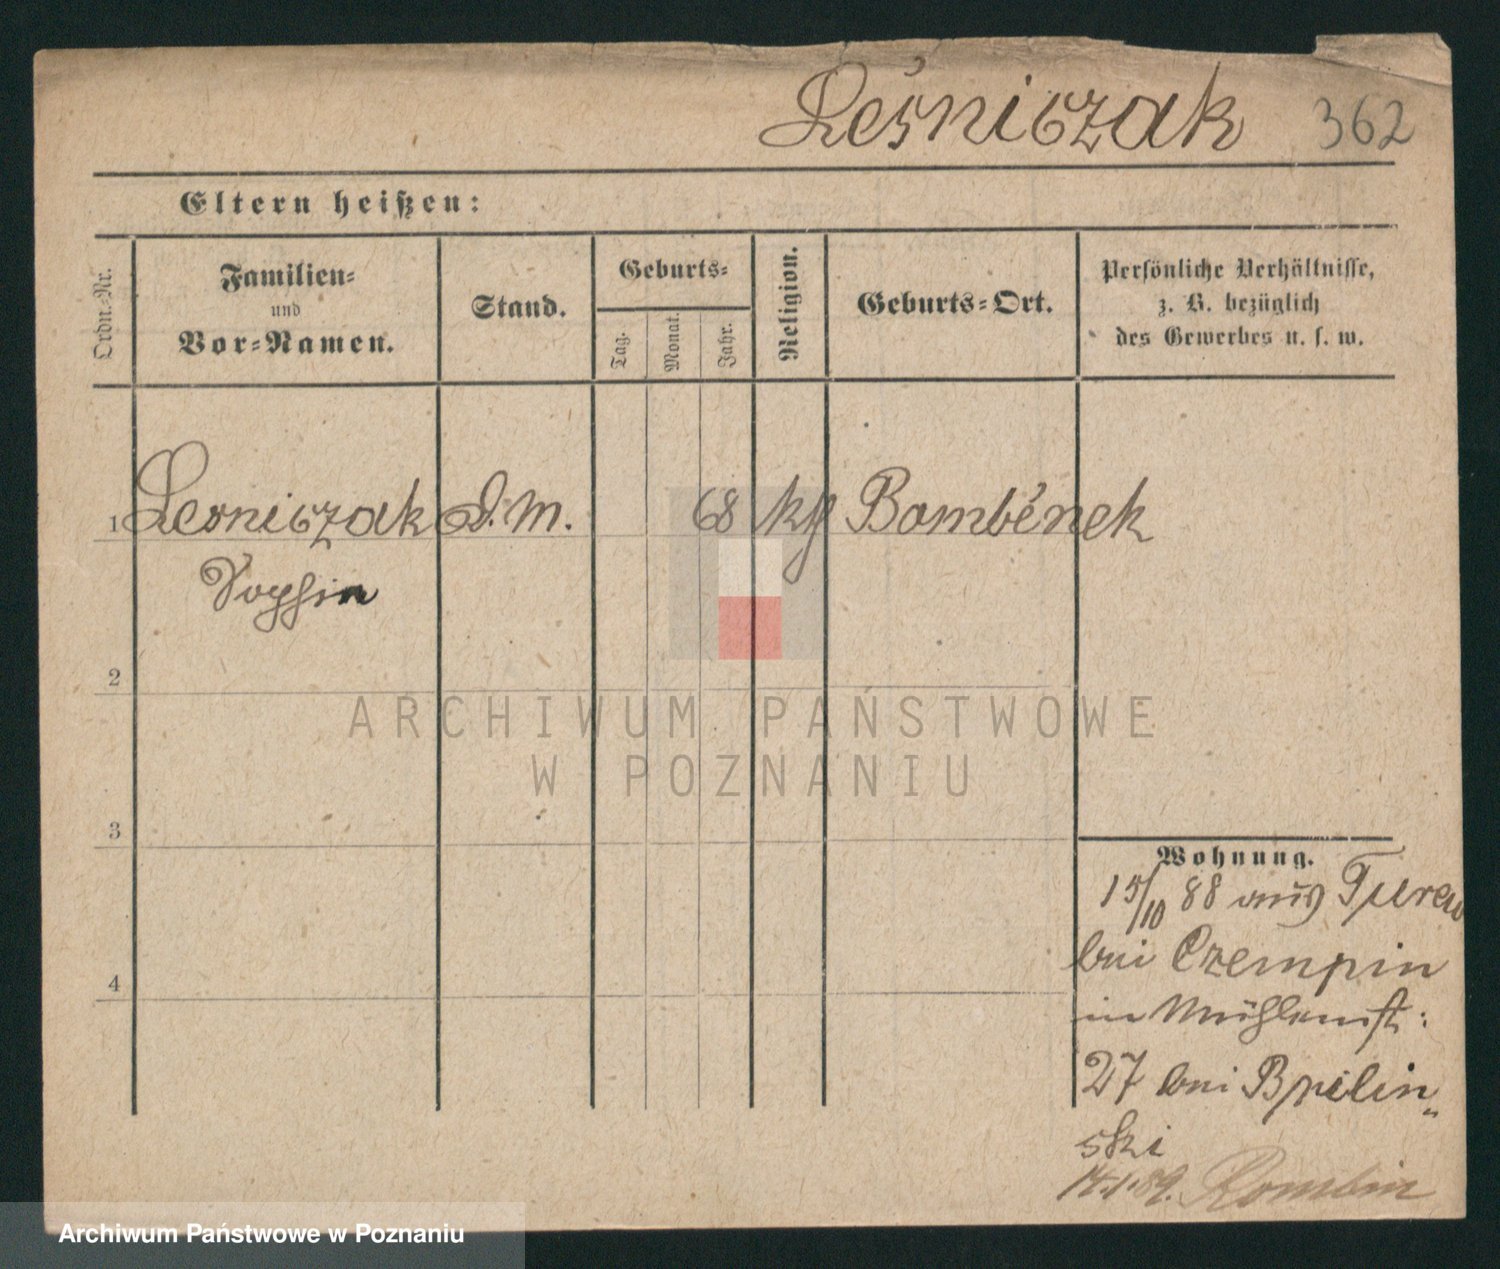 Leśniczak 362
Eltern heißen:
Ordn.-Nr.
Familien-
und
Vor-Namen.
Stand.
Geburts-
Tag.
Monat.
Jahr.
Religion.
Geburts-Ort.
Persönliche Verhältnisse,
z. B. bezüglich
des Gewerbes u. s. w.
1 Lesniczak D. M. 68 kg Bombének
Sophia
2
ARCHIWUM PAŃSTWOWE
W POZNANIU
3
Wohnung.
15/10 88 aus Turew
bei Czempin
in Mühlenst:
27 bei Brilin„
ski
4
14.1.89.
Archiwum Państwowe w Poznaniu